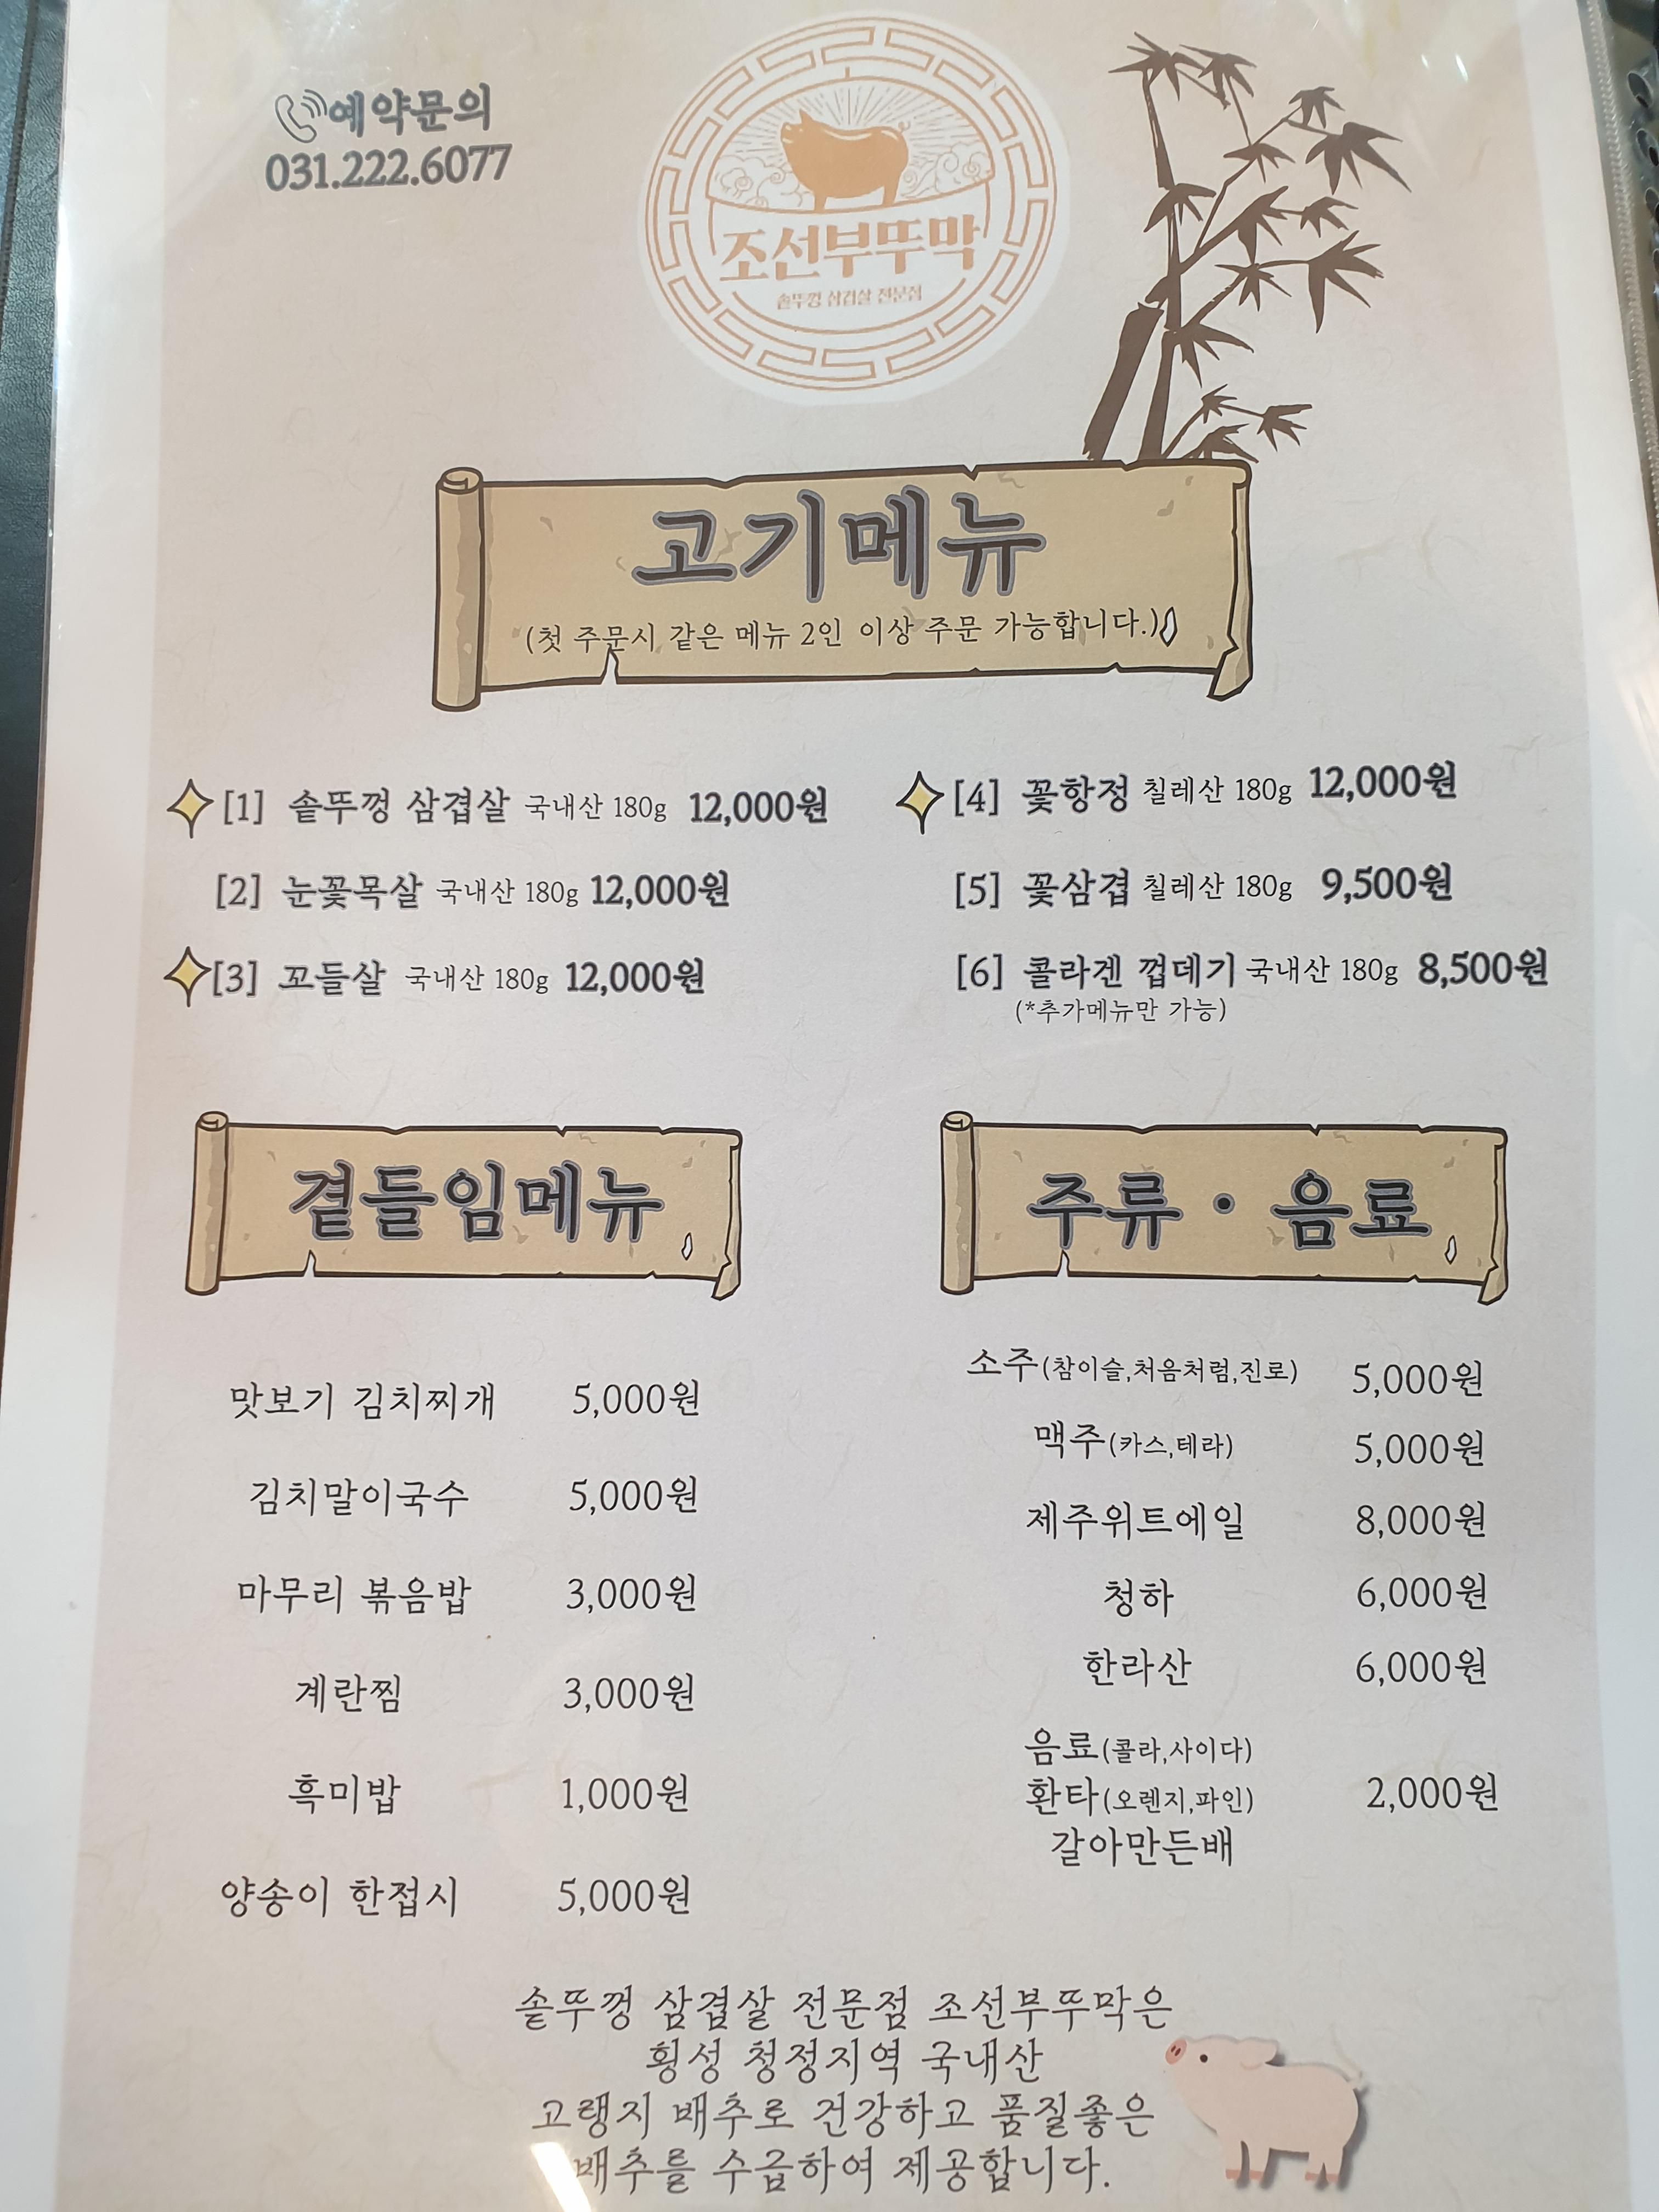 예약문의
031.222.6077
조선부뚜막
솥뚜껑 삼겹살 전문점
고기메뉴
(첫 주문시 같은 메뉴 2인 이상 주문 가능합니다.)
[1] 솥뚜껑 삼겹살 국내산 180g 12,000원
[2] 눈꽃목살 국내산 180g 12,000원
[3] 꼬들살 국내산 180g 12,000원
[4] 꽃항정 칠레산 180g 12,000원
[5] 꽃삼겹 칠레산 180g 9,500원
[6] 콜라겐 껍데기 국내산 180g 8,500원
(*추가메뉴만 가능)
곁들임메뉴
맛보기 김치찌개 5,000원
김치말이국수 5,000원
마무리 볶음밥 3,000원
계란찜 3,000원
흑미밥 1,000원
양송이 한접시 5,000원
주류·음료
소주(참이슬,처음처럼,진로) 5,000원
맥주(카스,테라) 5,000원
제주위트에일 8,000원
청하 6,000원
한라산 6,000원
음료(콜라,사이다)
환타(오렌지,파인) 2,000원
갈아만든배
솥뚜껑 삼겹살 전문점 조선부뚜막은
횡성 청정지역 국내산
고랭지 배추로 건강하고 품질좋은
배추를 수급하여 제공합니다.